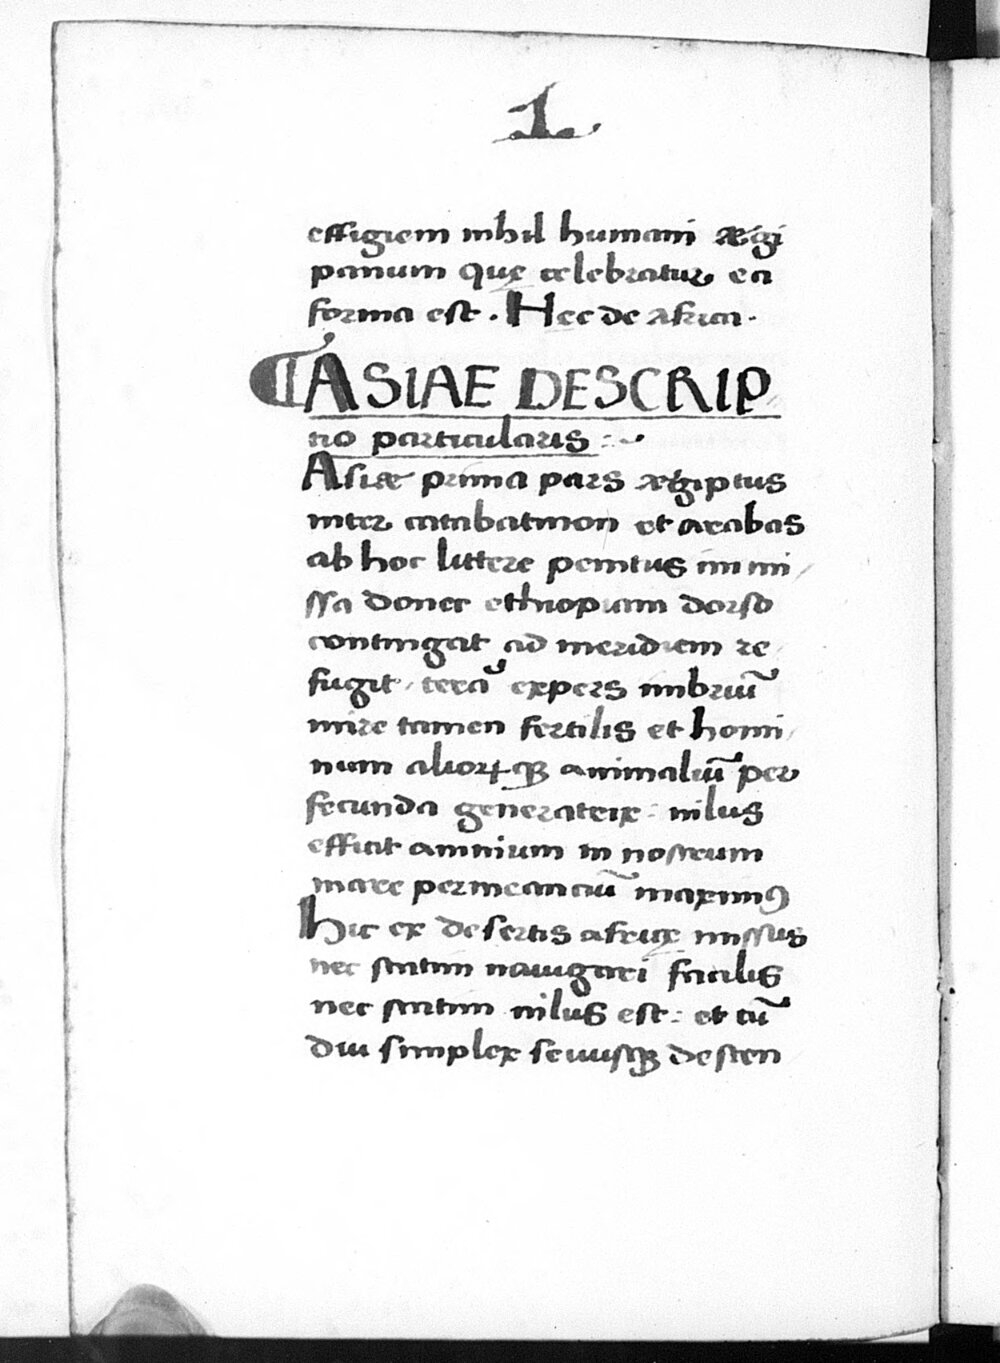 1
effigiem nihil humani ægi
panum quę celebratur ea
forma est. Hec de africa.
ASIAE DESCRIP
tio particularis :~
Asiæ prima pars ægiptus
inter catabatmon et arabas
ab hoc littere penitus immi/
ssa donec ethiopiam dorso
contingat ad meridiem re/
fugit, terra expers imbriū
mire tamen fertilis et homi/
num aliorꝝqꝫ animaliū per
fecunda generatrix : nilus
efficit amnium in nostrum
mare permeanciū maximꝰ
hic ex desertis africę missus
nec statim nauigari facilis
nec statim nilus est : et cū
diu simplex seuusqꝫ descen